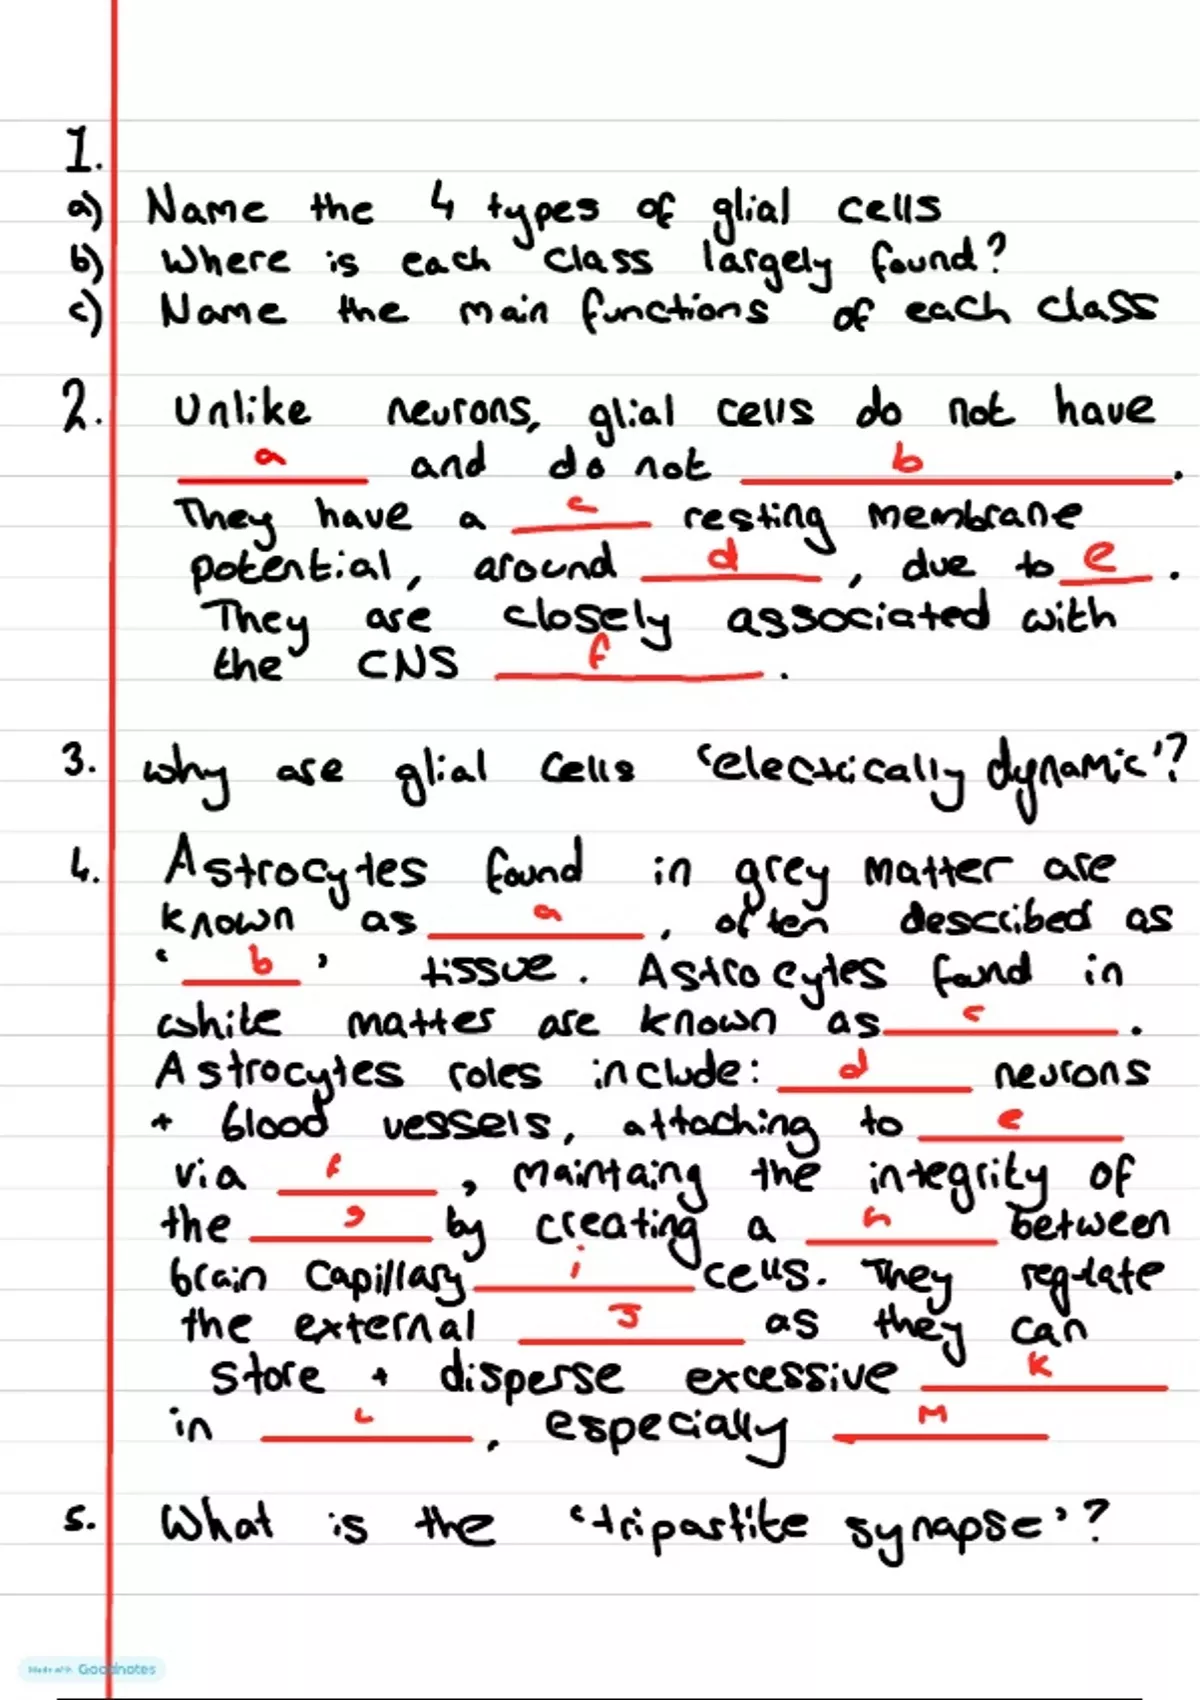 1.
a) Name the 4 types of glial cells
b) Where is each class largely found?
c) Name the main functions of each class
2. Unlike neurons, glial cells do not have
a and do not b.
They have a c resting membrane
potential, around d, due to e.
They are closely associated with
the CNS f.
3. why are glial cells 'electrically dynamic'?
4. Astrocytes found in grey matter are
known as a, often described as
'b' tissue. Astrocytes found in
white matter are known as c.
Astrocytes roles include: d neurons
+ blood vessels, attaching to e
via f, maintaing the integrity of
the g by creating a h between
brain capillary i cells. They regulate
the external J as they can
store + disperse excessive K
in L, especially M
5. What is the 'tripartite synapse'?
Made with Goodnotes